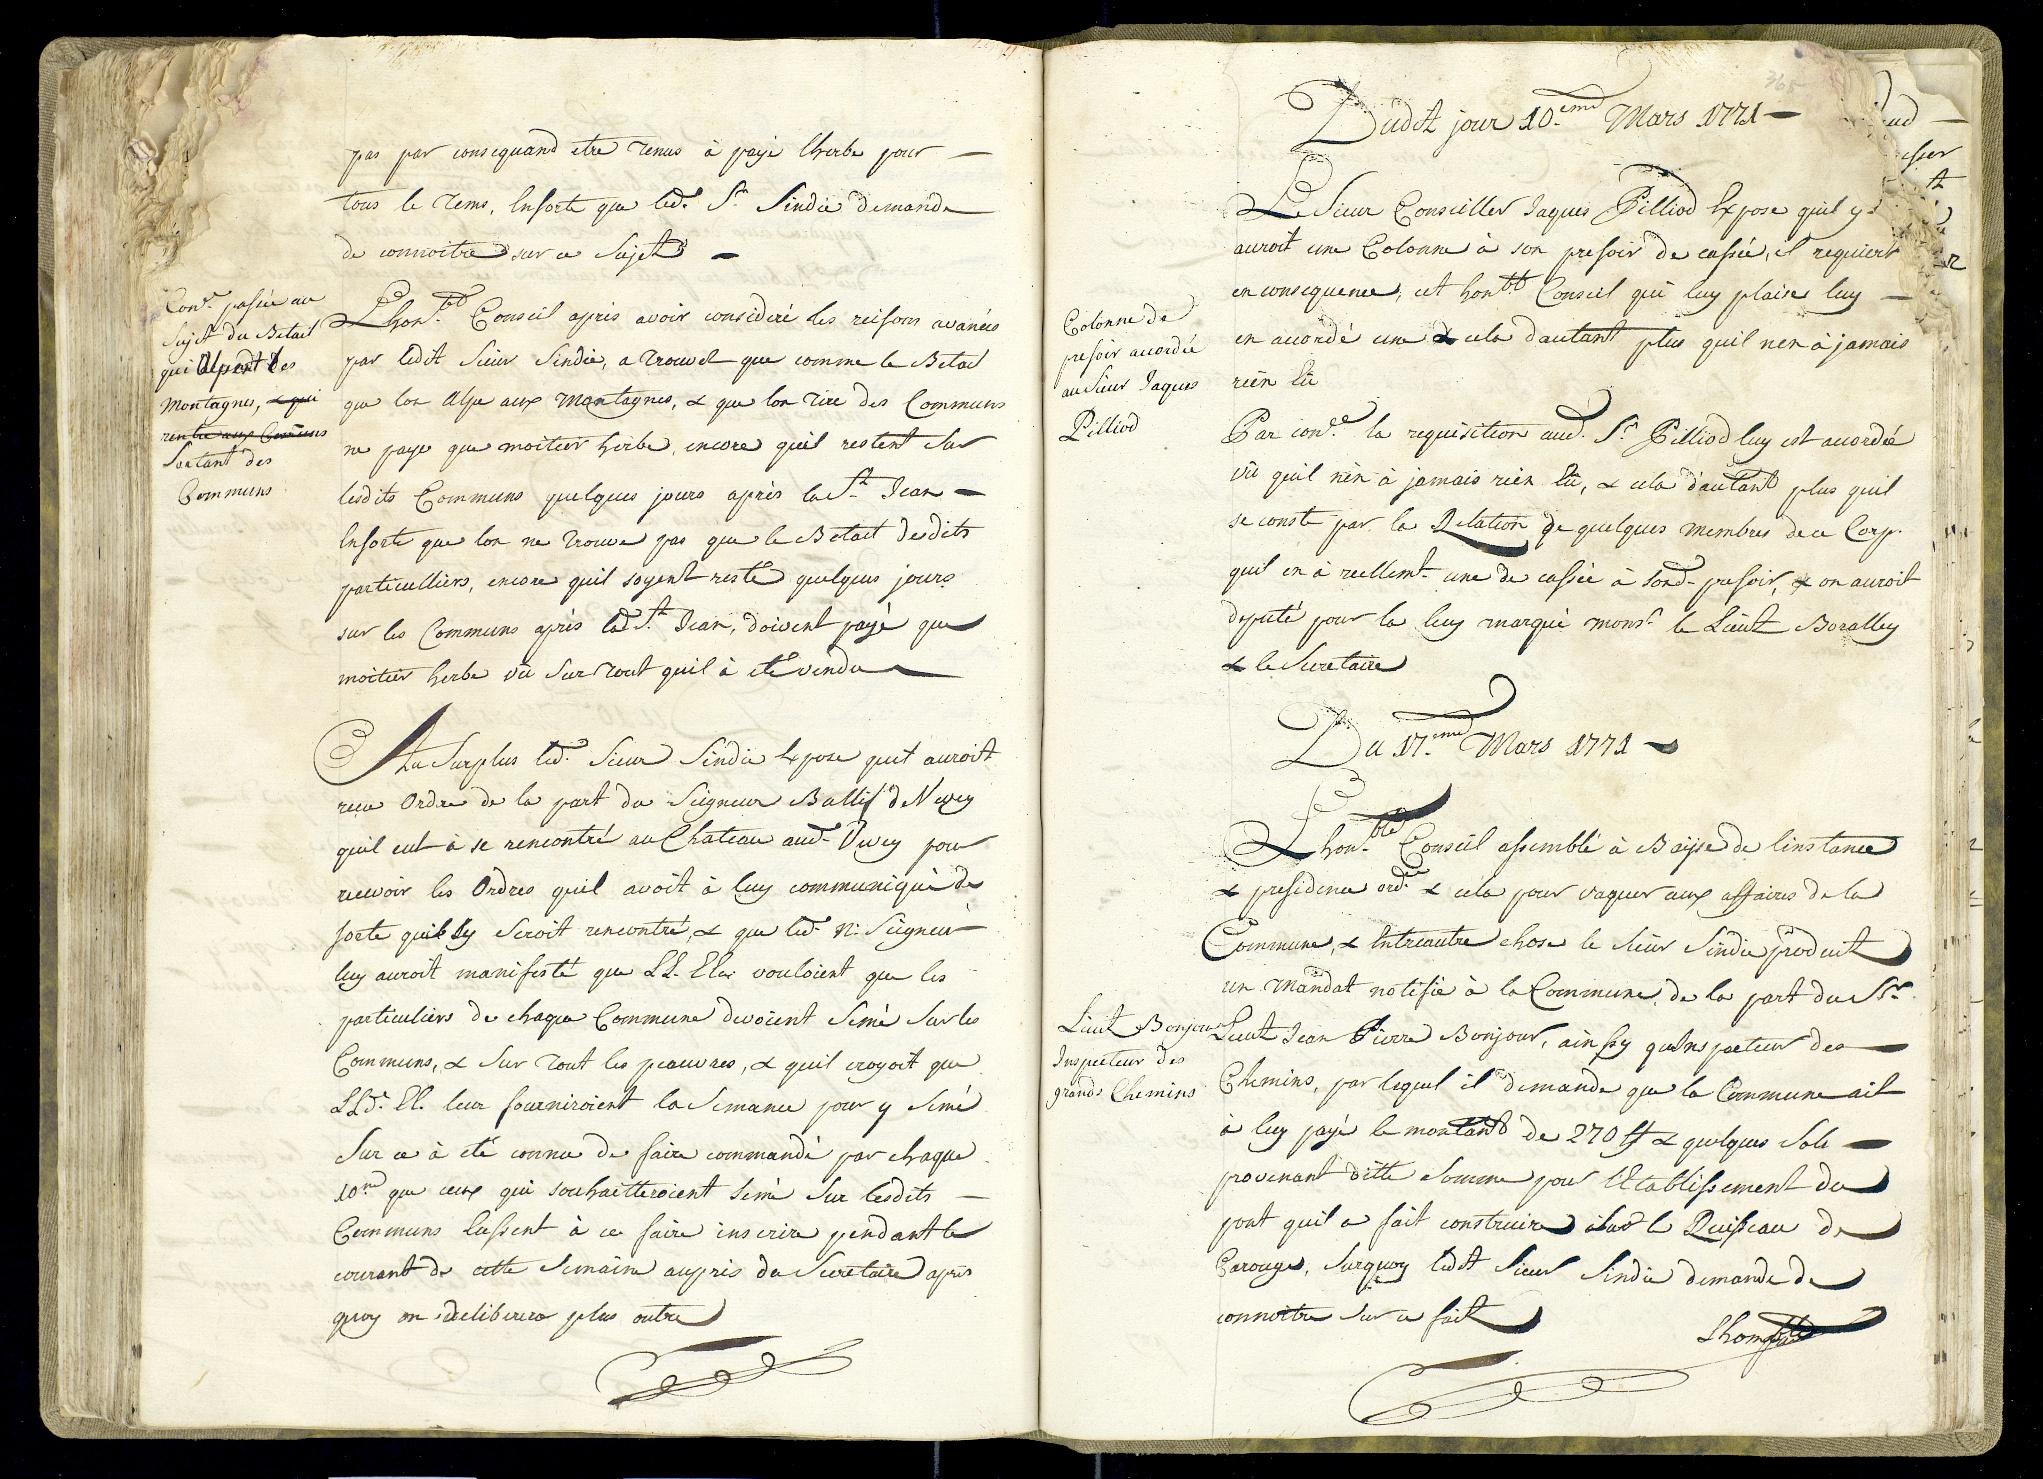 pas par consequand etre tenus à payé lherbe pour
tous le tems, Ensorte que led. Sr. Sindic demande
de connoitre sur ce Sujet
Con.r passée au
Sujet du Betail
qui Alpent les
Montagnes, & qui
rentre aux Comuns
Sortant des
Communs
Lhon.ble Conseil apres avoir consideré les reisons avancés
par ledit Sieur Sindic, a trouvet que comme le Betail
que lon Alpe aux Montagnes, & que lon tire des Communs
ne paye que moitier herbe, encore quil restent Sur
lesdits Communs quelques jours après la St. Jean
Ensorte que lon ne trouve pas que le Betail desdits
particulliers, encore quil soyent resté quelques jours
sur les Communs après lad. St. Jean, doivent payé que
moitier herbe vû Sur tout quil à été vendu
Au Surplus led. Sieur Sindic Expose quil auroit
reçu Ordre de la part du Seigneur Ballif de Vevey
quil eut à se rencontré au Chateau aud. Vevey pour
recevoir les Ordres quil avoit à luy communiqué de
sorte quil sy Seroit rencontré, & que led. N. Seigneur
luy auroit manifesté que LL. Ex. vouloient que les
particuliers de chaque Commune devoient Semé Sur les
Communs, & Sur tout les peauvres, & quil croyoit que
LLd. Ex. leur fourniroient la Semance pour y Semé
Sur ce à été connu de faire commandé par chaque
10.ne que ceux qui souhaitteroient Semé Sur lesdits
Communs Eussent à ce faire inscrire pendant le
courant de cette Semaine aupres du Secretaire apres
quoy on delibérera plus outre
365
Dudit jour 10.eme Mars 1771
Le Sieur Conseiller Jaques Pilliod Expose quil y
auroit une Colonne à son presoir de cassée, il requiert
en consequence, cet hon.ble Conseil qui luy plaise luy
en accordé une & cela dautant plus quil nen à jamais
rien Eû
Colonne de
presoir accordée
au Sieur Jaques
Pilliod
Par con.ce la requisition aud. Sr. Pilliod luy est accordée
vû quil nèn à jamais rien Eû, & cela d'autant plus quil
se conste par la Relation de quelques membres de ce Corp.
quil en à reellemt. une de cassée à Sond. presoir, & on auroit
deputé pour la luy marqué monsr. le Lieut Boralley
& le Secretaire
Du 17.eme Mars 1771
Lhon.ble Conseil assemblé à Bayse de linstance
& presidence ord.e & cela pour vaquer aux affaires de la
Commune, & Entreautre chose le Sieur Sindic produit
un Mandat notifié à la Commune de la part du Sr.
Lieut Bonjour
Inspecteur des
grands Chemins
Lieut Jean Pierre Bonjour, ainsy quInspecteur des
Chemins, par lequel il demande que la Commune ait
à luy payé le montant de 270 ff & quelques Sols
provenant ditte Somme pour lEtablissement du
pont quil a fait construire sur le Ruisseau de
Carouge, Surquoy ledit Sieur Sindic demande de
connoitre Sur ce fait
Lhon.ble